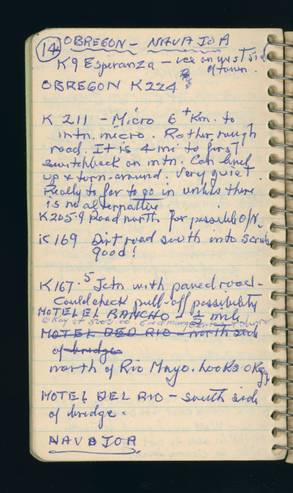 14 OBREGON - NAVAJOA
K9 Esperanza - res on west side
of town.
OBREGON K224
K 211 - Micro 6+ Km. to
mtn. micro. Rather rough
road. It is 4 mi to first
switchback on mtn. Can back
up & turn-around. Very quiet.
Really to far to go in unless there
is no alternative
K205-9 Road north for possible O/N.
K169 Dirt road south into scrub
good!
K167.5 Jctn with paved road -
Could check pull-off possibility
HOTEL EL RANCHO - 1/2 mile
HOTEL DEL RIO - north side
of bridge
north of Rio Mayo. Looks OK
HOTEL DEL RIO - south side
of bridge.
NAVAJOA